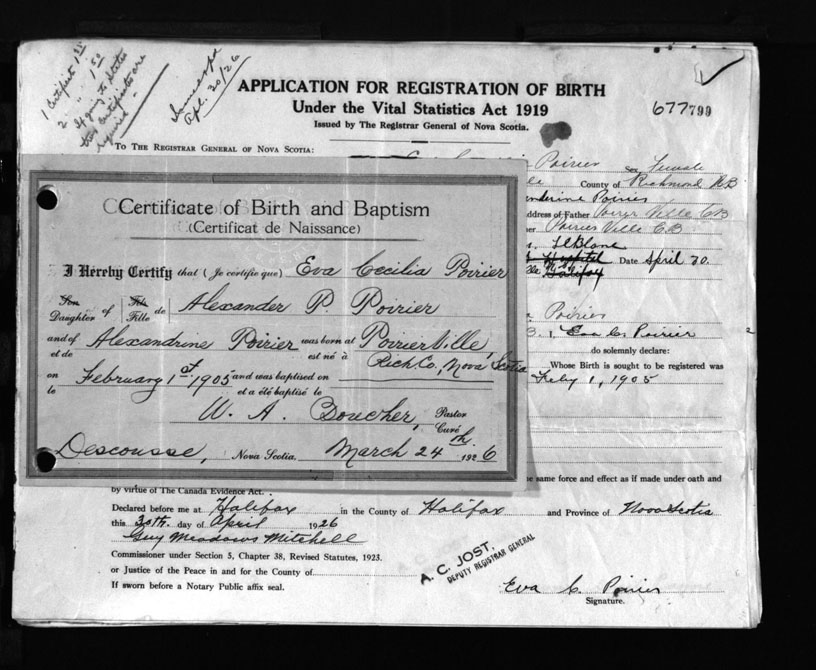 1 Certificate 1.00
2 " 1.50
If going to States
two certificates are
required
Apl. 30/26
APPLICATION FOR REGISTRATION OF BIRTH
Under the Vital Statistics Act 1919
Issued by The Registrar General of Nova Scotia.
677799
TO THE REGISTRAR GENERAL OF NOVA SCOTIA:
Poirier Female
County of Richmond
Poirier
address of Father Poirier Ville CB
Poirier Ville CB
LeBlanc
Hospital Date April 30.
Halifax
Poirier
I, Eva C. Poirier
do solemnly declare:
Whose Birth is sought to be registered was
Feby 1, 1905
Certificate of Birth and Baptism
(Certificat de Naissance)
I Hereby Certify that (Je certifie que) Eva Cecilia Poirier
Son Fils
Daughter of Fille de Alexander P. Poirier
and of Alexandrine Poirier was born at PoirierVille,
et de est né à Rich. Co., Nova Scotia
on February 1st 1905 and was baptised on
le et a été baptisé le
W. A. Boucher, Pastor
Curé
Descousse, Nova Scotia. March 24th 1926
the same force and effect as if made under oath and
by virtue of The Canada Evidence Act.
Declared before me at Halifax in the County of Halifax and Province of Nova Scotia
this 30th. day of April 1926
Guy Meadows Mitchell
Commissioner under Section 5, Chapter 38, Revised Statutes, 1923.
or Justice of the Peace in and for the County of
If sworn before a Notary Public affix seal.
A. C. JOST.
DEPUTY REGISTRAR GENERAL
Eva C. Poirier
Signature.